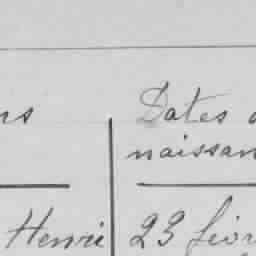 Dates
ns
naissan
Henri 23 févr